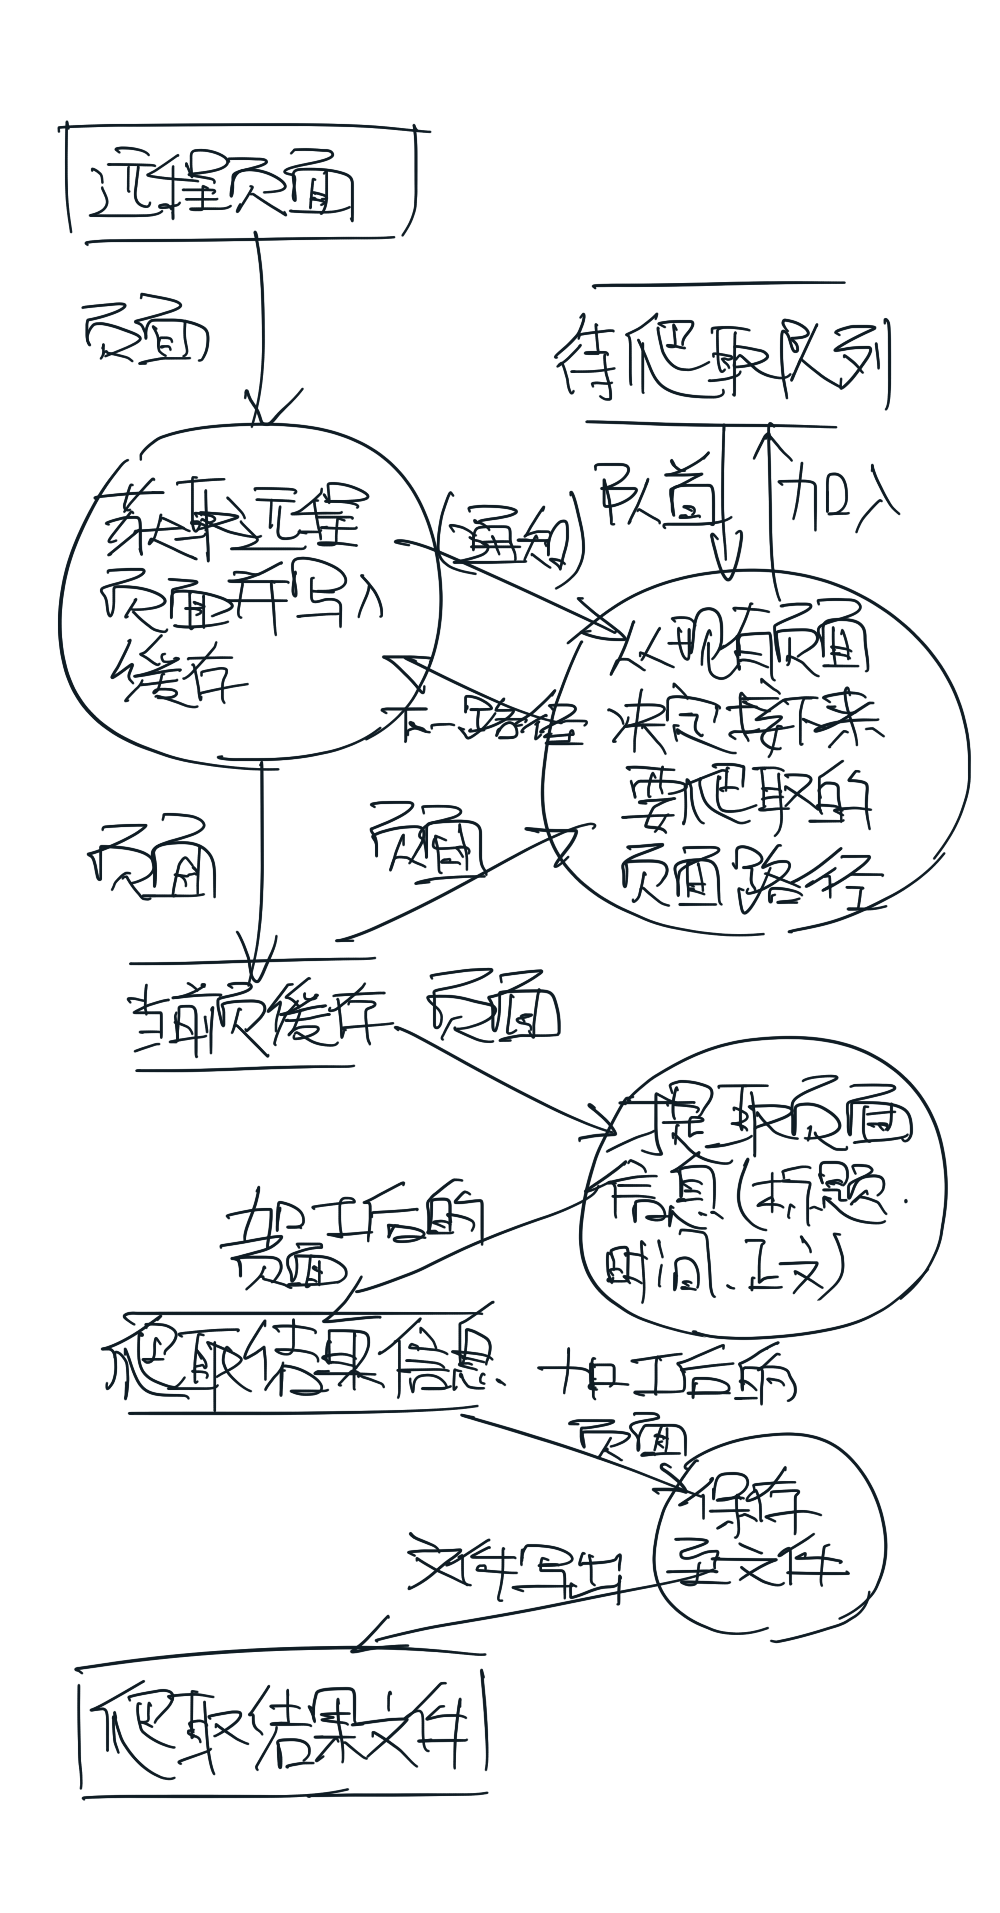 远程页面
页面
待爬取队列
队首
加入
获取远程
页面并写入
缓存
(通知)
下一路径
从现有页面
决定接下来
要爬取的
页面路径
页面
页面
当前页缓存
页面
提取页面
信息(标题、
时间、正文)
加工后的
页面
爬取结果信息
加工后的
页面
保存
至文件
文件写出
爬取结果文件